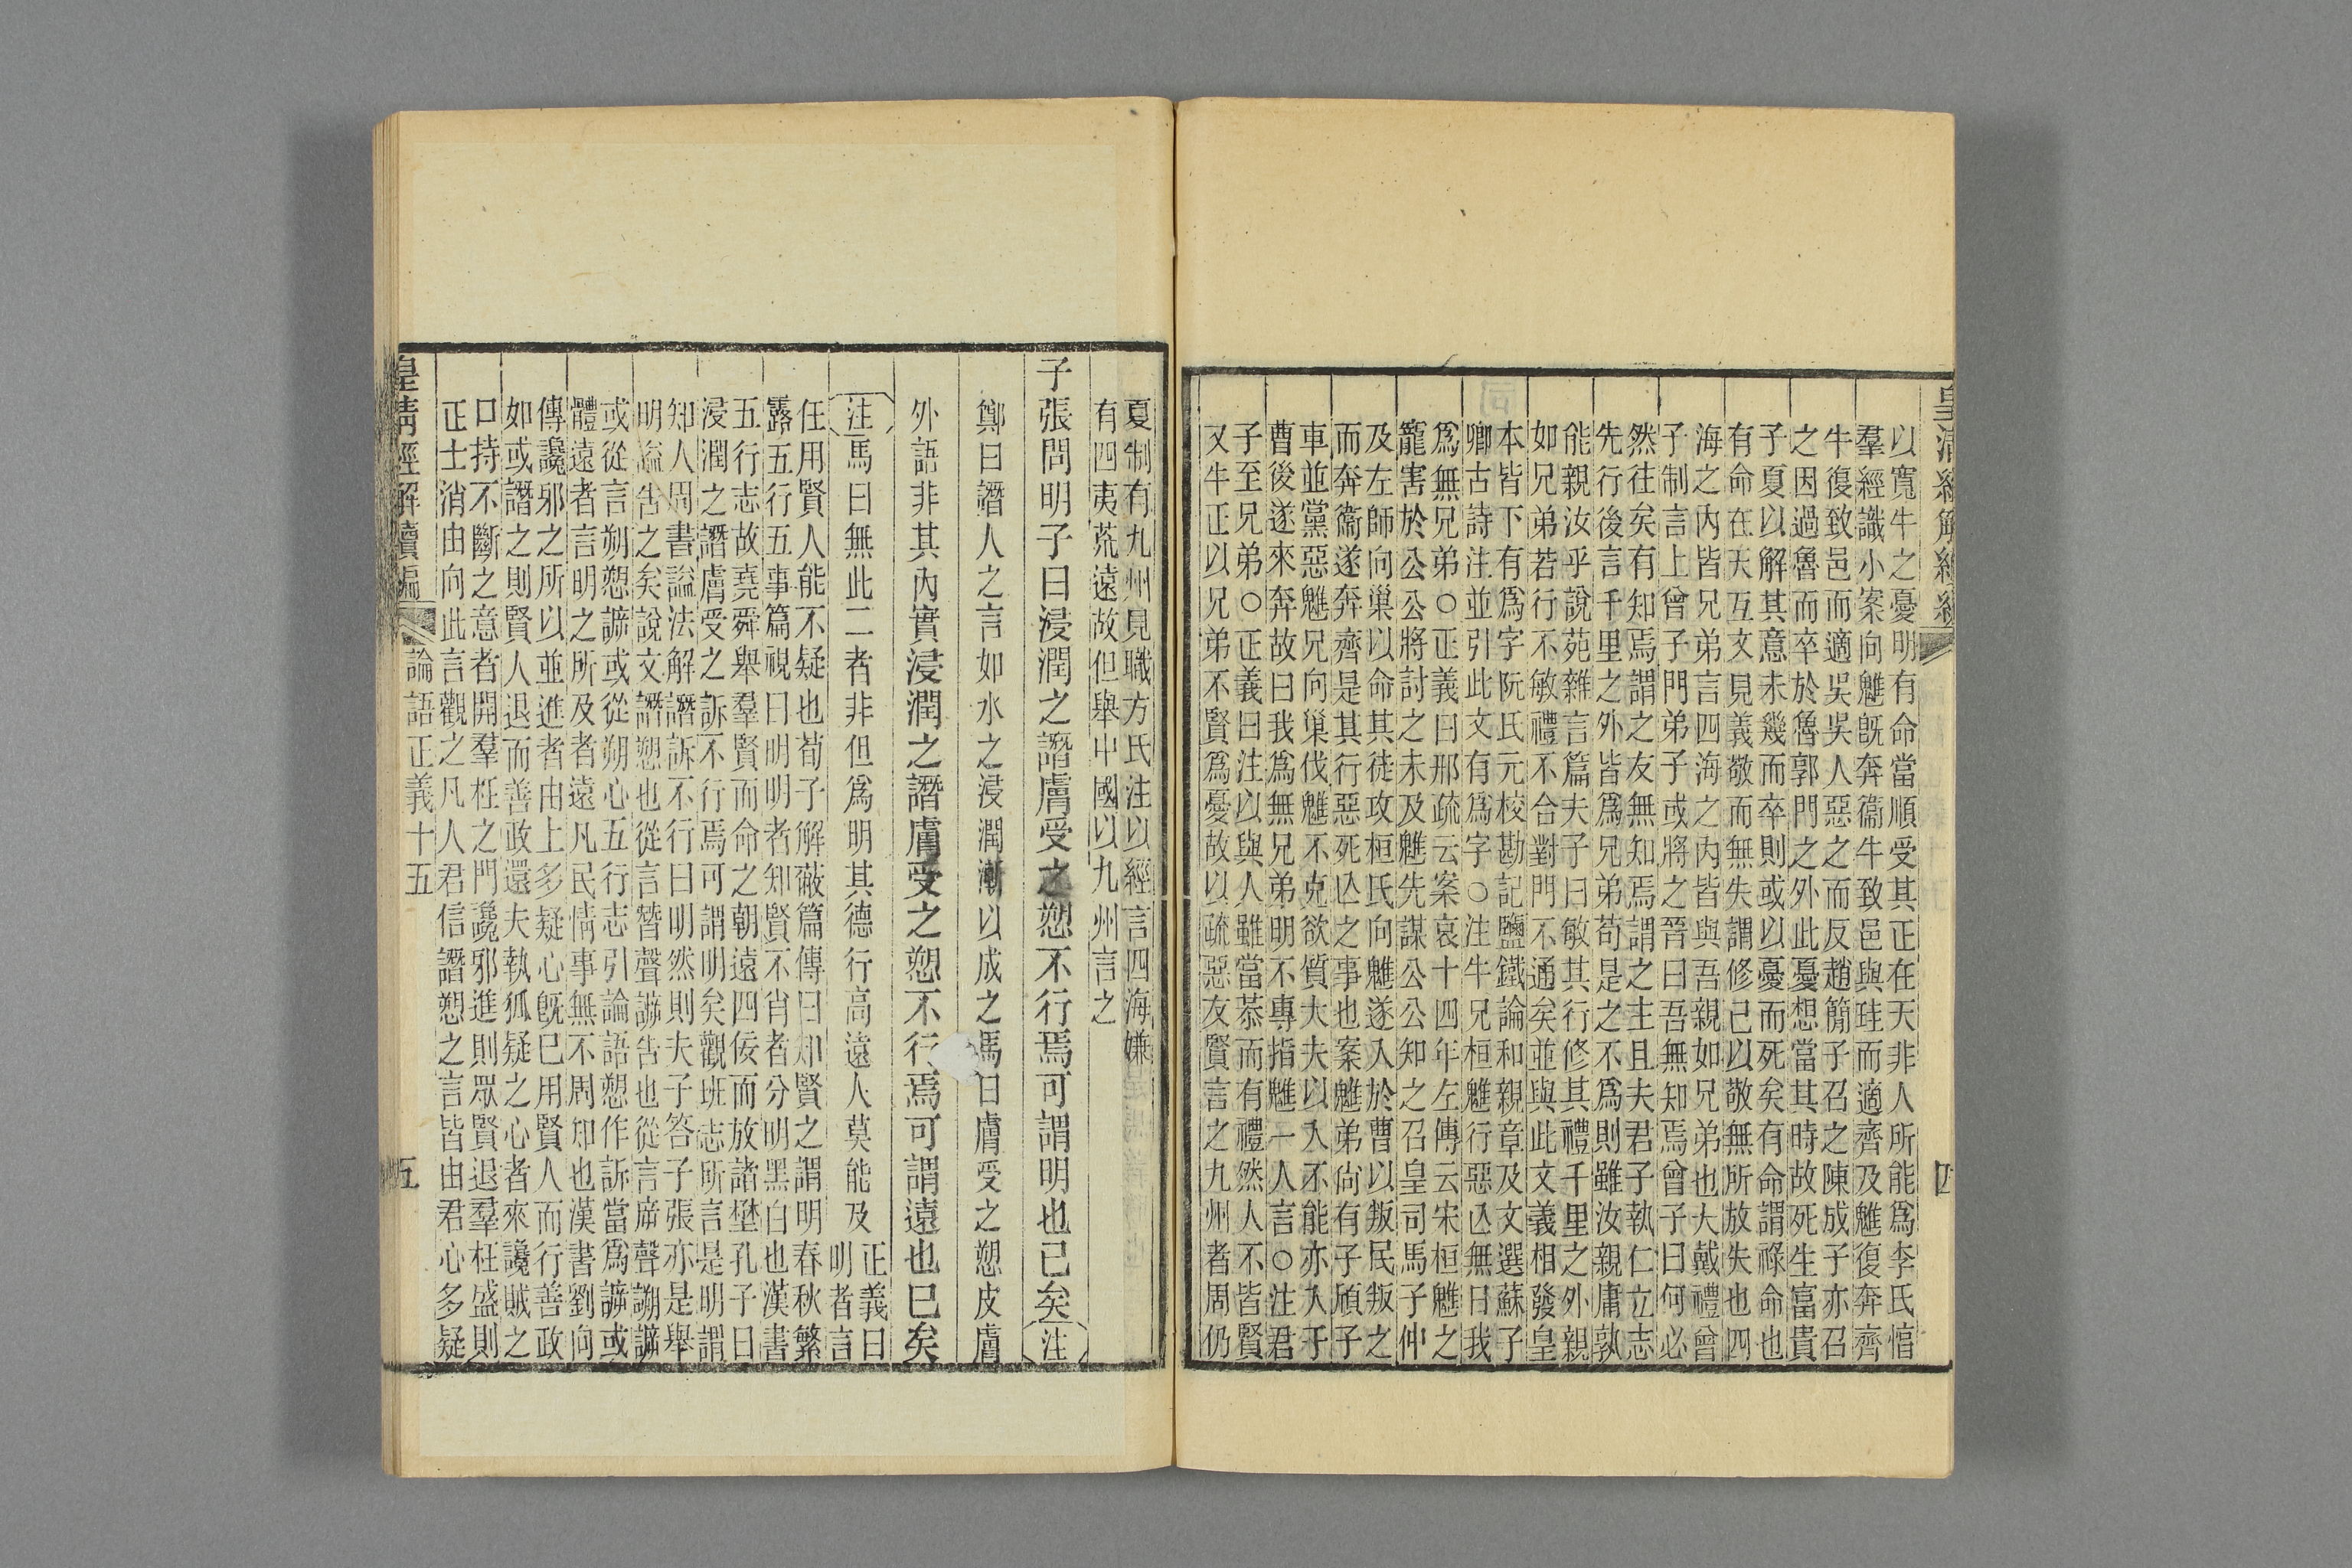 皇清經解續編 四
以寬牛之憂明有命當順受其正在天非人所能爲李氏惇
羣經識小案向魋旣奔衞牛致邑與珪而適齊及魋復奔齊
牛復致邑而適吳吳人惡之而反趙簡子召之陳成子亦召
之因過魯而卒於魯郭門之外此憂想當其時故死生富貴
子夏以解其意未幾而卒則或以憂而死矣有命謂祿命也
有命在天互文見義敬而無失謂修己以敬無所放失也四
海之內皆兄弟言四海之內皆與吾親如兄弟也大戴禮曾
子制言上曾子門弟子或將之晉曰吾無知焉曾子曰何必
然往矣有知焉謂之友無知焉謂之主且夫君子執仁立志
先行後言千里之外皆爲兄弟苟是之不爲則雖汝親庸孰
能親汝乎說苑雜言篇夫子曰敏其行修其禮千里之外親
如兄弟若行不敏禮不合對門不通矣並與此文義相發皇
本皆下有爲字阮氏元校勘記鹽鐵論和親章及文選蘇子
卿古詩注並引此文有爲字○注牛兄桓魋行惡亾無日我
爲無兄弟○正義曰邢疏云案哀十四年左傳云宋桓魋之
寵害於公公將討之未及魋先謀公公知之召皇司馬子仲
及左師向巢以命其徒攻桓氏向魋遂入於曹以叛民叛之
而奔衞遂奔齊是其行惡死亾之事也案魋弟尙有子頎子
車並黨惡魋兄向巢伐魋不克欲質大夫以入不能亦入于
曹後遂來奔故曰我爲無兄弟明不專指魋一人言○注君
子至兄弟○正義曰注以與人雖當恭而有禮然人不皆賢
又牛正以兄弟不賢爲憂故以疏惡友賢言之九州者周仍
夏制有九州見職方氏注以經言四海嫌
有四夷荒遠故但舉中國以九州言之
子張問明子曰浸潤之譖膚受之愬不行焉可謂明也已矣注
鄭曰譖人之言如水之浸潤漸以成之馬曰膚受之愬皮膚
外語非其內實浸潤之譖膚受之愬不行焉可謂遠也已矣
注馬曰無此二者非但爲明其德行高遠人莫能及
正義曰
明者言
任用賢人能不疑也荀子解蔽篇傳曰知賢之謂明春秋繁
露五行五事篇視曰明明者知賢不肖者分明黑白也漢書
五行志故堯舜舉羣賢而命之朝遠四佞而放諸壄孔子曰
浸潤之譖膚受之訴不行焉可謂明矣觀班志所言是明謂
知人周書謚法解譖訴不行曰明然則夫子答子張亦是舉
明謚告之矣說文譖愬也從言朁聲諦告也從言㡿聲謝諦
或從言朔愬諦或從朔心五行志引論語愬作訴當爲諦或
體遠者言明之所及者遠凡民情事無不周知也漢書劉向
傳讒邪之所以並進者由上多疑心旣已用賢人而行善政
如或譖之則賢人退而善政還夫執狐疑之心者來讒賊之
口持不斷之意者開羣枉之門讒邪進則眾賢退羣枉盛則
正士消由向此言觀之凡人君信譖愬之言皆由君心多疑
皇清經解續編 論語正義十五 五